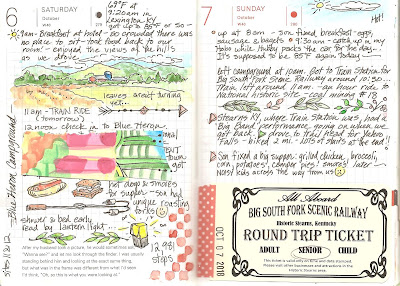 6 SATURDAY
October
2018
69°F at
9:20am in
Lexington, KY
got up to 85°F or so -
9am - Breakfast at hotel - so crowded there was
no place to sit - took food back to our
room - enjoyed the views of the hills
as we drove
leaves aren't turning
yet
11am - TRAIN RIDE
(tomorrow)
12 noon check in to Blue Heron.
Blue Heron Campground
hot
but
down
got
hot dogs & s'mores
for supper - son had
unique roasting
forks
shower & bed early
read by lantern light -
12,981
steps
After my husband took a picture, he would sometimes say,
"Wanna see?" and let me look through the finder. I was usually
standing behind him and looking at the exact same thing.
But what was in the frame was different from what I'd seen.
I'd think, "Oh, so this is what you were looking at."
7 SUNDAY
October
2018
Hot!
up at 8am - son fixed breakfast - eggs,
sausage & bagels 9:30am - catch up in my
Hobo while Hubby packs the car for the day.
It's supposed to be 85°F again today -
left campground at 10am. Got to Train Station for
Big South Fork Scenic Railway around 10:30am.
Train left around 11am - an hour ride to
National historic site - coal mining # 18
Stearns KY, where Train Station was, had a
Big Band performance going on when we
got back drove to trail head for Yahoo
Falls - hiked 2 mi. - lots of stairs at the end!!
Son fixed a big supper: grilled chicken, broccoli,
corn, potatoes! Camper pies! S'mores! later -
Nasty kids across the way from us
All Aboard
BIG SOUTH FORK SCENIC RAILWAY
Historic Stearns, Kentucky
ROUND TRIP TICKET
ADULT SENIOR CHILD
OCT 07 2018
This ticket is valid only on time and date stamped.
Please visit other businesses and attractions in the
Historic Stearns area.